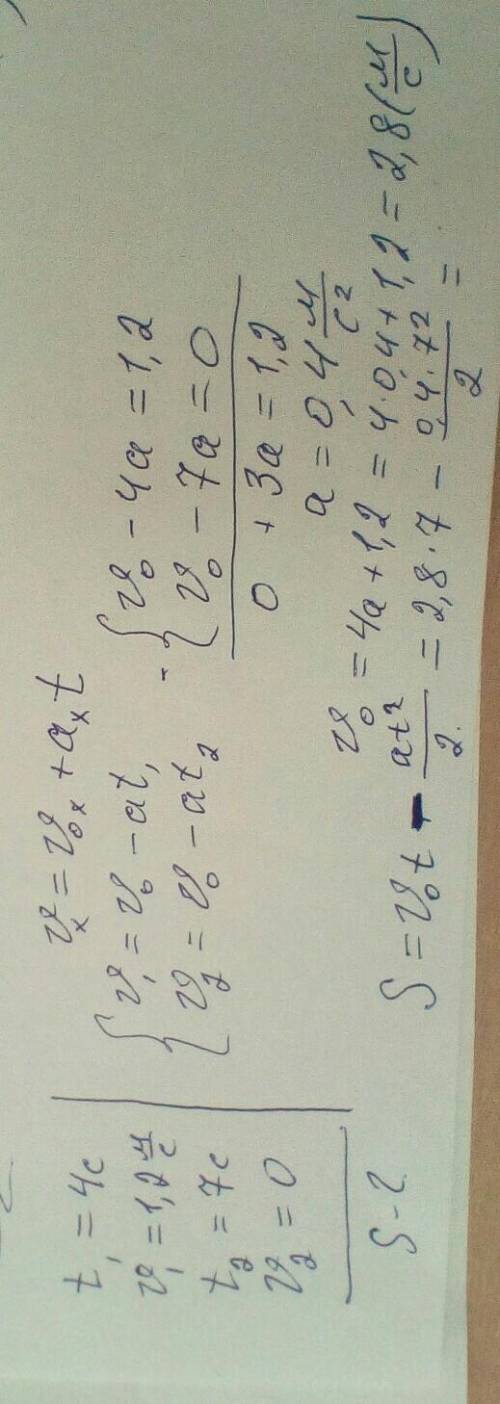 t₁ = 4с
v₁ = 1,2 м/с
t₂ = 7с
v₂ = 0
S - ?
vₓ = v₀ₓ + aₓt
{ v₁ = v₀ - at₁
{ v₂ = v₀ - at₂
- { v₀ - 4a = 1,2
{ v₀ - 7a = 0
0 + 3a = 1,2
a = 0,4 м/с²
v₀ = 4a + 1,2 = 4·0,4 + 1,2 = 2,8 (м/с)
S = v₀t - at²/2 = 2,8·7 - 0,4·7²/2 =